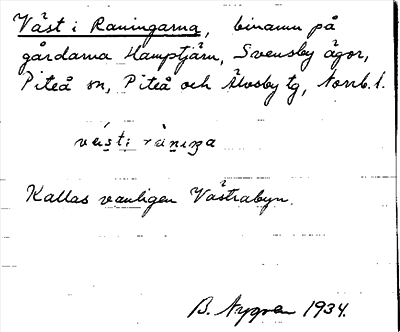 Väst i Raningarna, binamn på
gårdarna Hamptjärn, Svensby ägor,
Piteå sn, Piteå och Älvsby tg, Norrb. l.
vä́st i ràniŋa
Kallas vanligen Västrabyn.
B. Nygren 1934.